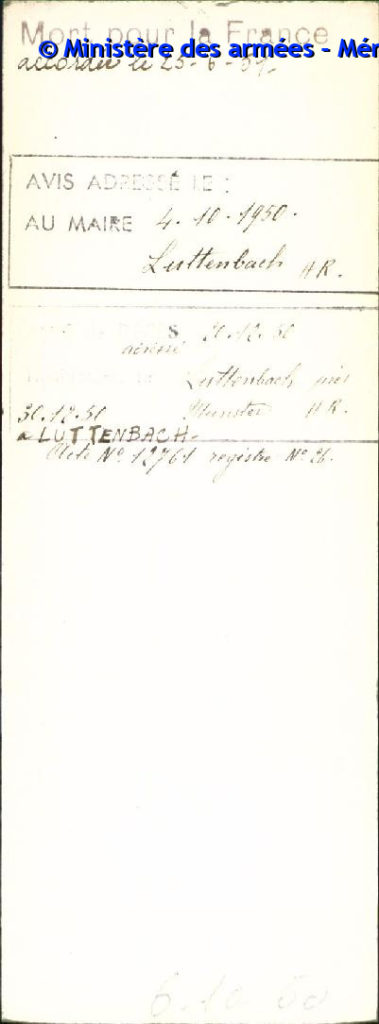 Mort pour la France
© Ministère des armées - Mém
accordée le 25-6-51.
AVIS ADRESSÉ LE :
AU MAIRE 4.10.1950.
Luttenbach HR.
S
Luttenbach près
30.12.50 Munster HR.
a LUTTENBACH-
Acte Nº 12761 registre Nº 26.
6.10.50